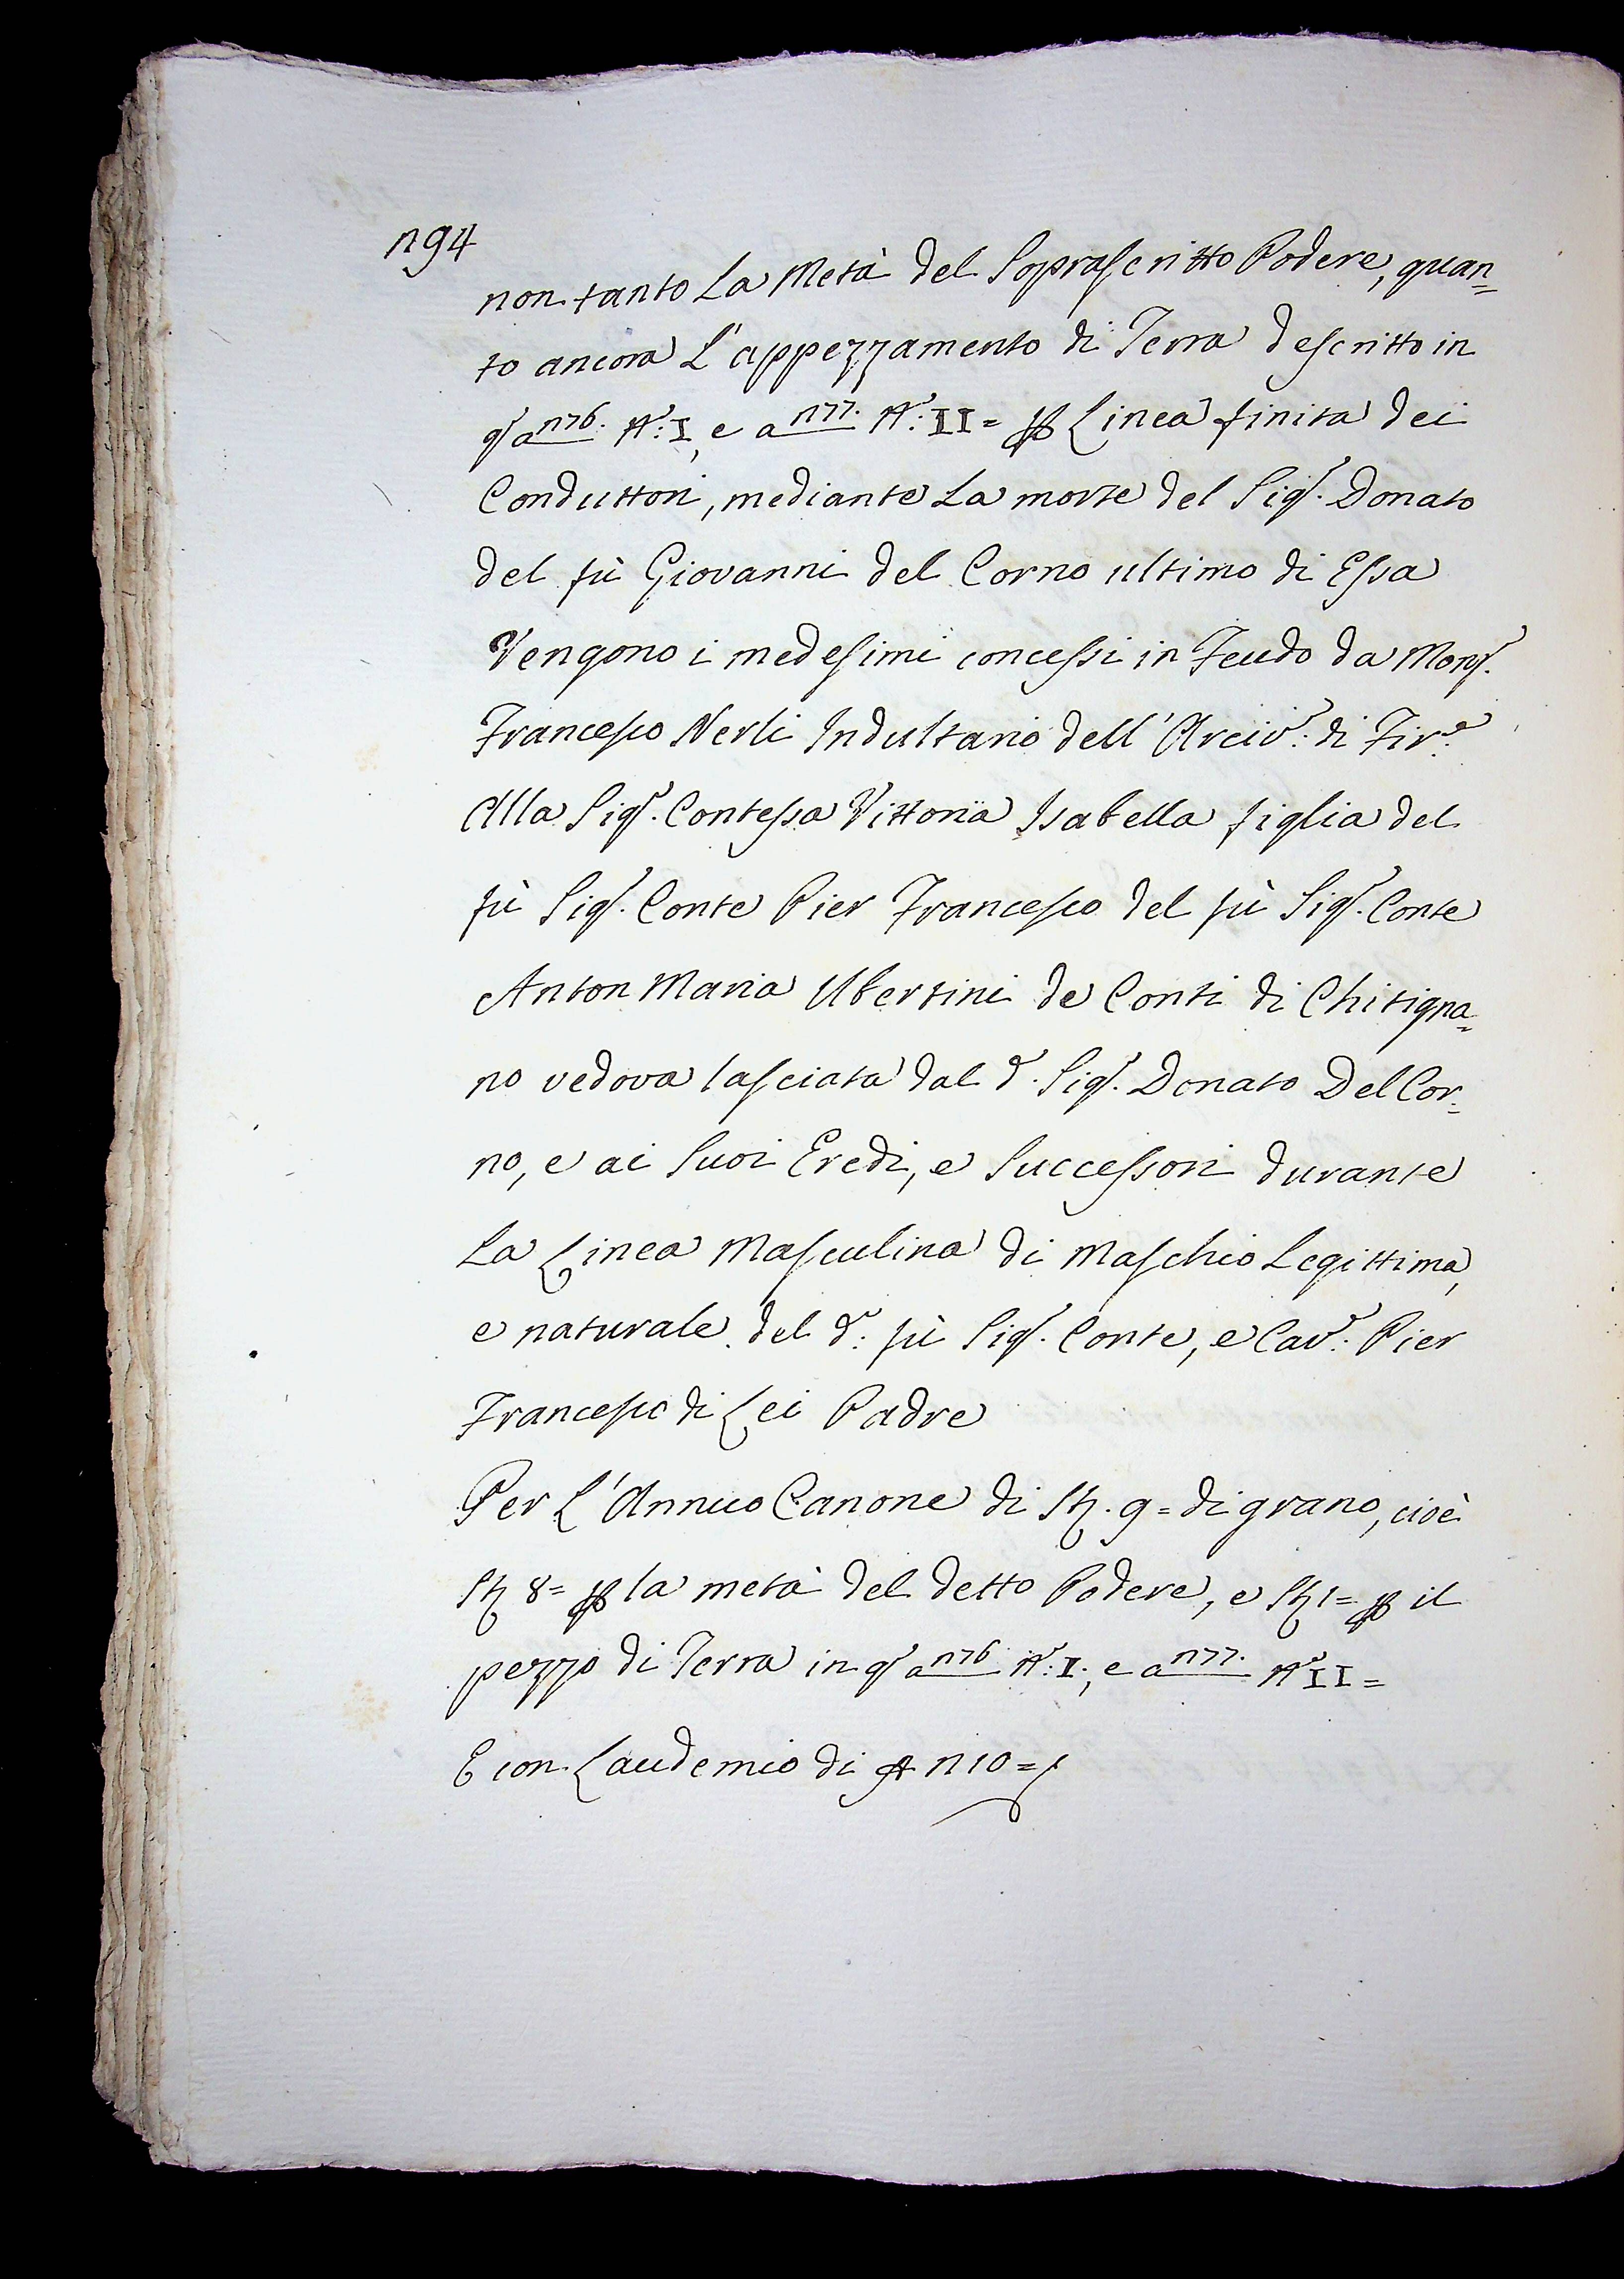 194
non tanto La Metà del Soprascritto Podere, quan=
to ancora L'appezzamento di Terra descritto in
q.º a 176. N.º: I, e a 177. N.º: II = p Linea finita dei
Conduttori, mediante La morte del Sig.r Donato
del fù Giovanni del Corno ultimo di Essa
Vengono i medesimi concessi in Feudo da Mons.r
Francesco Nerli Indultario dell'Arciv.º: di Fir.e
Alla Sig.r Contessa Vittoria Isabella figlia del
fù Sig.r Conte Pier Francesco del fù Sig.r Conte
Anton Maria Ubertini de Conti di Chitigna=
no vedova lasciata dal d.º Sig.r Donato Del Cor=
no, e ai Suoi Eredi, e Successori durante
La Linea Masculina di Maschio Legittima,
e naturale del d.º: fù Sig.r Conte, e Cav.r: Pier
Francesco di Lei Padre
Per L'Annuo Canone di St. 9 = di grano, cioè
St 8 = p la metà del detto Podere, e St 1 = p il
pezzo di Terra in q.º a 176 N.º: I; e a 177. N.º II =
E con Laudemio di 110 =